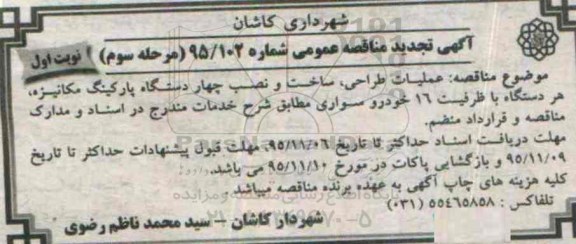 شهرداری کاشان
آگهی تجدید مناقصه عمومی شماره ۹۵/۱۰۲ (مرحله سوم)
نوبت اول
موضوع مناقصه: عملیات طراحی، ساخت و نصب چهار دستگاه پارکینگ مکانیزه،
هر دستگاه با ظرفیت ۱۶ خودرو سواری مطابق شرح خدمات مندرج در اسناد و مدارک
مناقصه و قرارداد منضم.
مهلت دریافت اسناد حداکثر تا تاریخ ۹۵/۱۱/۰۶، مهلت قبول پیشنهادات حداکثر تا تاریخ
۹۵/۱۱/۰۹ و بازگشایی پاکات در مورخ ۹۵/۱۱/۱۰ می باشد.
کلیه هزینه های چاپ آگهی به عهده برنده مناقصه میباشد.
تلفاکس: ۵۵۴۶۵۸۵۸ (۰۳۱)
شهردار کاشان - سید محمد ناظم رضوی